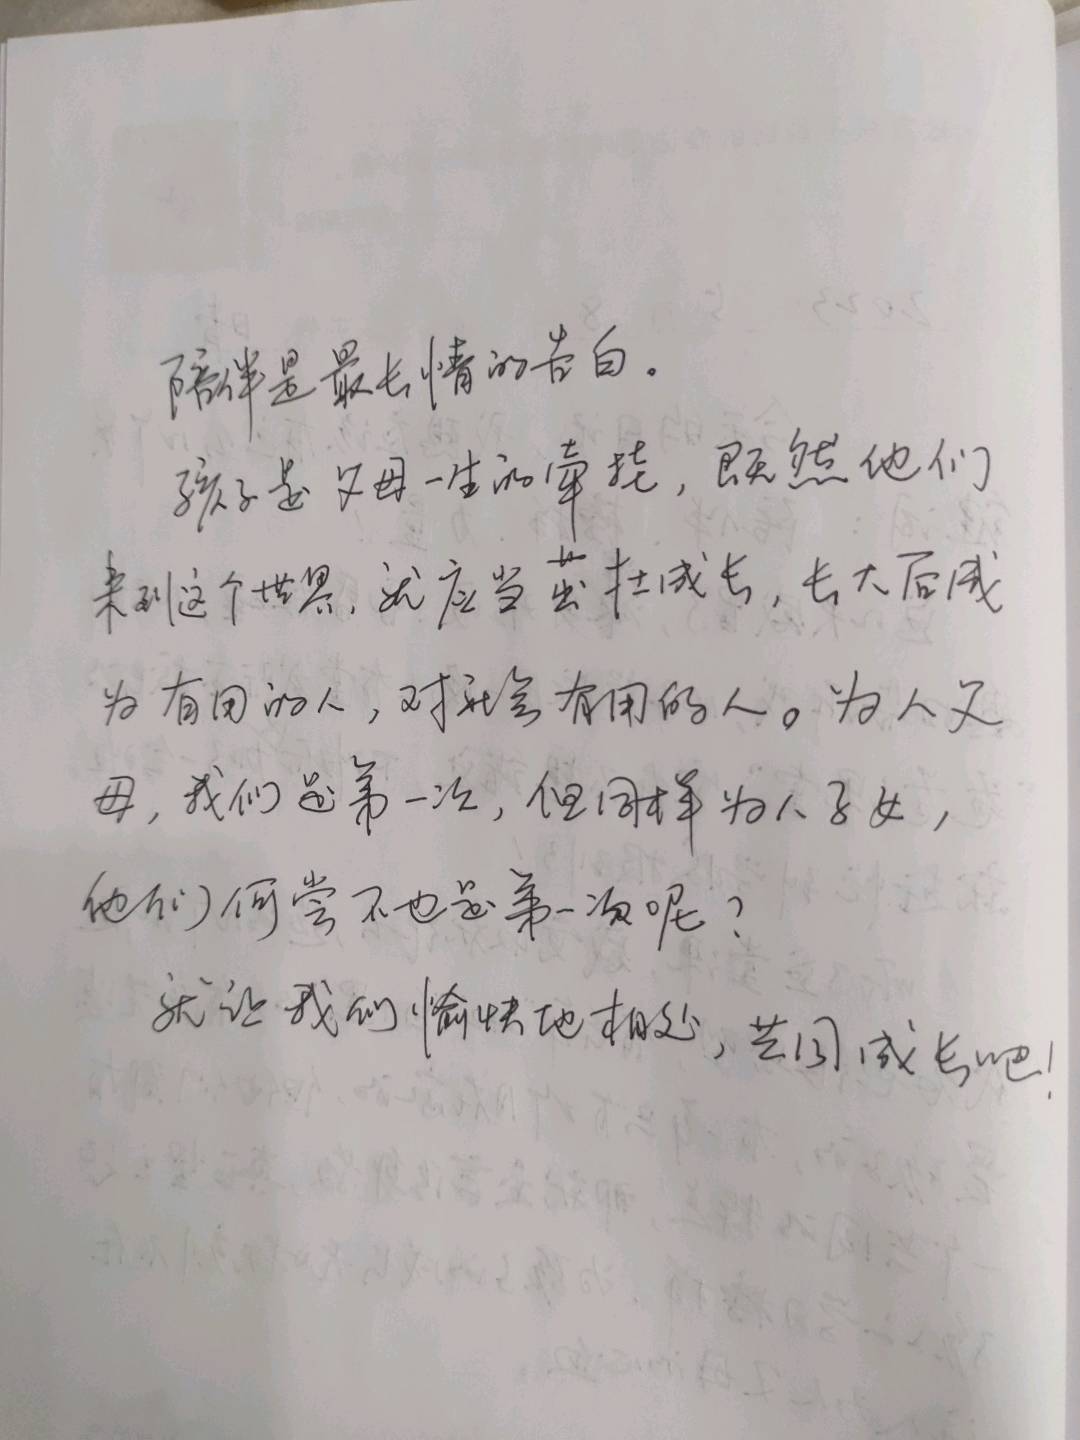 陪伴是最长情的告白。
孩子是父母一生的牵挂，既然他们
来到这个世界，就应当茁壮成长，长大后成
为有用的人，对社会有用的人。为人父
母，我们是第一次，但同样为人子女，
他们何尝不也是第一次呢？
就让我们愉快地相处，共同成长吧！